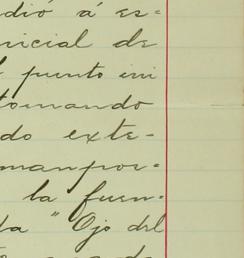 dió á es-
nicial de
punto ini
tomando
do exte-
manpor-
la fuen-
da "Ojo del